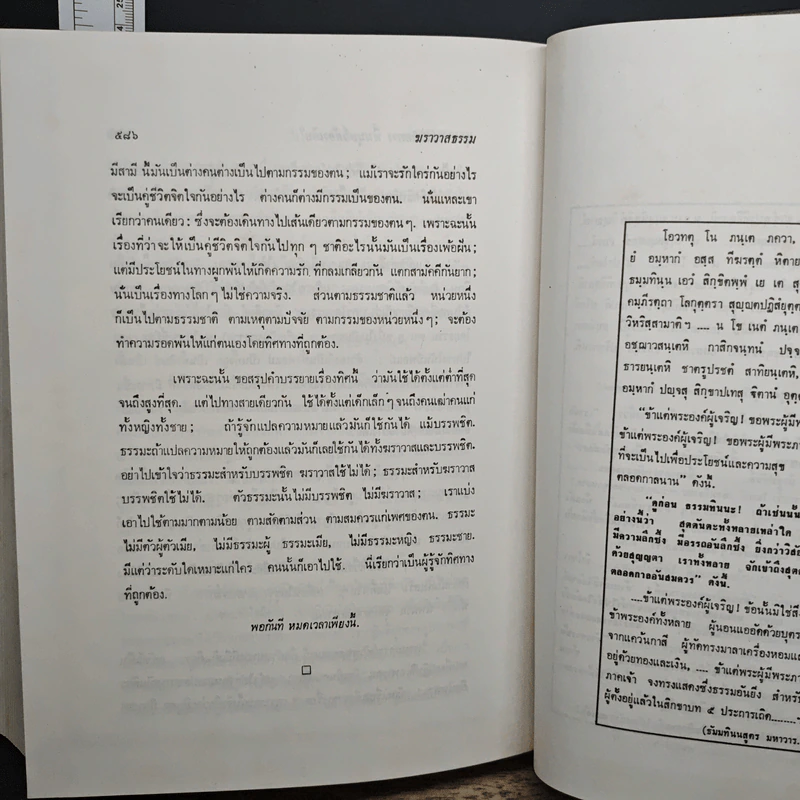 ๕๘๖ ฆราวาสธรรม
มีสามี นี้มันเป็นต่างคนต่างเป็นไปตามกรรมของตน; แม้เราจะรักใคร่กันอย่างไร
จะเป็นคู่ชีวิตจิตใจกันอย่างไร ต่างคนก็ต่างมีกรรมเป็นของตน. นั่นแหละเขา
เรียกว่าคนเดียว: ซึ่งจะต้องเดินทางไปเส้นเดียวตามกรรมของตน ๆ. เพราะฉะนั้น
เรื่องที่ว่าจะให้เป็นคู่ชีวิตจิตใจกันไปทุก ๆ ชาติอะไรนั้นมันเป็นเรื่องเพ้อฝัน;
แต่มีประโยชน์ในทางผูกพันให้เกิดความรัก ที่กลมเกลียวกัน แตกสามัคคีกันยาก;
นั่นเป็นเรื่องทางโลก ๆ ไม่ใช่ความจริง. ส่วนตามธรรมชาติแล้ว หน่วยหนึ่ง
ก็เป็นไปตามธรรมชาติ ตามเหตุตามปัจจัย ตามกรรมของหน่วยหนึ่ง ๆ; จะต้อง
ทำความรอดพ้นให้แก่ตนเองโดยทิศทางที่ถูกต้อง.
เพราะฉะนั้น ขอสรุปคำบรรยายเรื่องทิศนี้ ว่ามันใช้ได้ตั้งแต่ต่ำที่สุด
จนถึงสูงที่สุด. แต่ไปทางสายเดียวกัน ใช้ได้ตั้งแต่เด็กเล็ก ๆ จนถึงคนเฒ่าคนแก่
ทั้งหญิงทั้งชาย; ถ้ารู้จักแปลความหมายแล้วมันก็ใช้กันได้ แม้บรรพชิต.
ธรรมะถ้าแปลความหมายให้ถูกต้องแล้วมันก็เลยใช้กันได้ทั้งฆราวาสและบรรพชิต.
อย่าไปเข้าใจว่าธรรมะสำหรับบรรพชิต ฆราวาสใช้ไม่ได้; ธรรมะสำหรับฆราวาส
บรรพชิตใช้ไม่ได้. ตัวธรรมะนั้นไม่มีบรรพชิต ไม่มีฆราวาส; เราแบ่ง
เอาไปใช้ตามมากตามน้อย ตามสัดตามส่วน ตามสมควรแก่เพศของตน. ธรรมะ
ไม่มีตัวผู้ตัวเมีย, ไม่มีธรรมะผู้ ธรรมะเมีย, ไม่มีธรรมะหญิง ธรรมะชาย.
มีแต่ว่าระดับใดเหมาะแก่ใคร คนนั้นก็เอาไปใช้. นี่เรียกว่าเป็นผู้รู้จักทิศทาง
ที่ถูกต้อง.
พอกันที หมดเวลาเพียงนี้.
โอวทตุ โน ภนฺเต ภควา,
ยํ อมฺหากํ อสฺส ทีฆรตฺตํ หิตาย
ธมฺมทินฺน เอวํ สิกฺขิตพฺพํ เย เต สุ
คมฺภีรตฺถา โลกุตฺตรา สุญฺญตปฏิสํยุตฺ
วิหริสฺสามาติ ฯ .... น โข เนตํ ภนฺเต
อชฺฌาวสนฺเตหิ กาสิกจนฺทนํ ปจฺจ
ธารยนฺเตหิ ชาตรูปรชตํ สาทิยนฺเตหิ,
อมฺหากํ ปญฺจสุ สิกฺขาปเทสุ ฐิตานํ อุตฺต
"ข้าแต่พระองค์ผู้เจริญ! ขอพระผู้มีพ
ข้าแต่พระองค์ผู้เจริญ! ขอพระผู้มีพระภา
ที่จะเป็นไปเพื่อประโยชน์และความสุข
ตลอดกาลนาน" ดังนี้.
"ดูก่อน ธรรมทินนะ! ถ้าเช่นนั้น
อย่างนี้ว่า สุตตันตะทั้งหลายเหล่าใด
มีความลึกซึ้ง มีอรรถอันลึกซึ้ง ยิ่งกว่าวิสัย
ด้วยสุญญตา เราทั้งหลาย จักเข้าถึงสุต
ตลอดกาลอันสมควร" ดังนี้.
....ข้าแต่พระองค์ผู้เจริญ! ข้อนั้นมิใช่สิ่
ข้าพระองค์ทั้งหลาย ผู้นอนแออัดด้วยบุตร
จากแคว้นกาสี ผู้ทัดทรงมาลาเครื่องหอมแ
อยู่ด้วยทองและเงิน, .... ข้าแต่พระผู้มีพระภา
ภาคเจ้า จงทรงแสดงซึ่งธรรมอันยิ่ง สำหรั
ผู้ตั้งอยู่แล้วในสิกขาบท ๕ ประการเถิด........"
(ธัมมทินนสูตร มหาวาร.